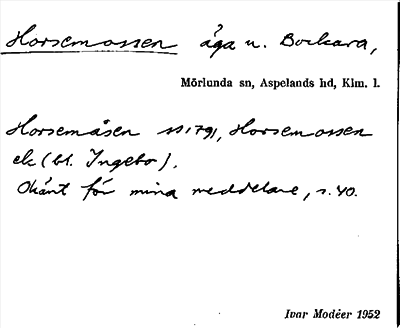 Horsemossen äga u. Bockara,
Mörlunda sn, Aspelands hd, Klm. l.
Horsemåsen 1791, Horsemossen
ek (bl. Ingebo).
Okänt för mina meddelare, s. 40.
Ivar Modéer 1952